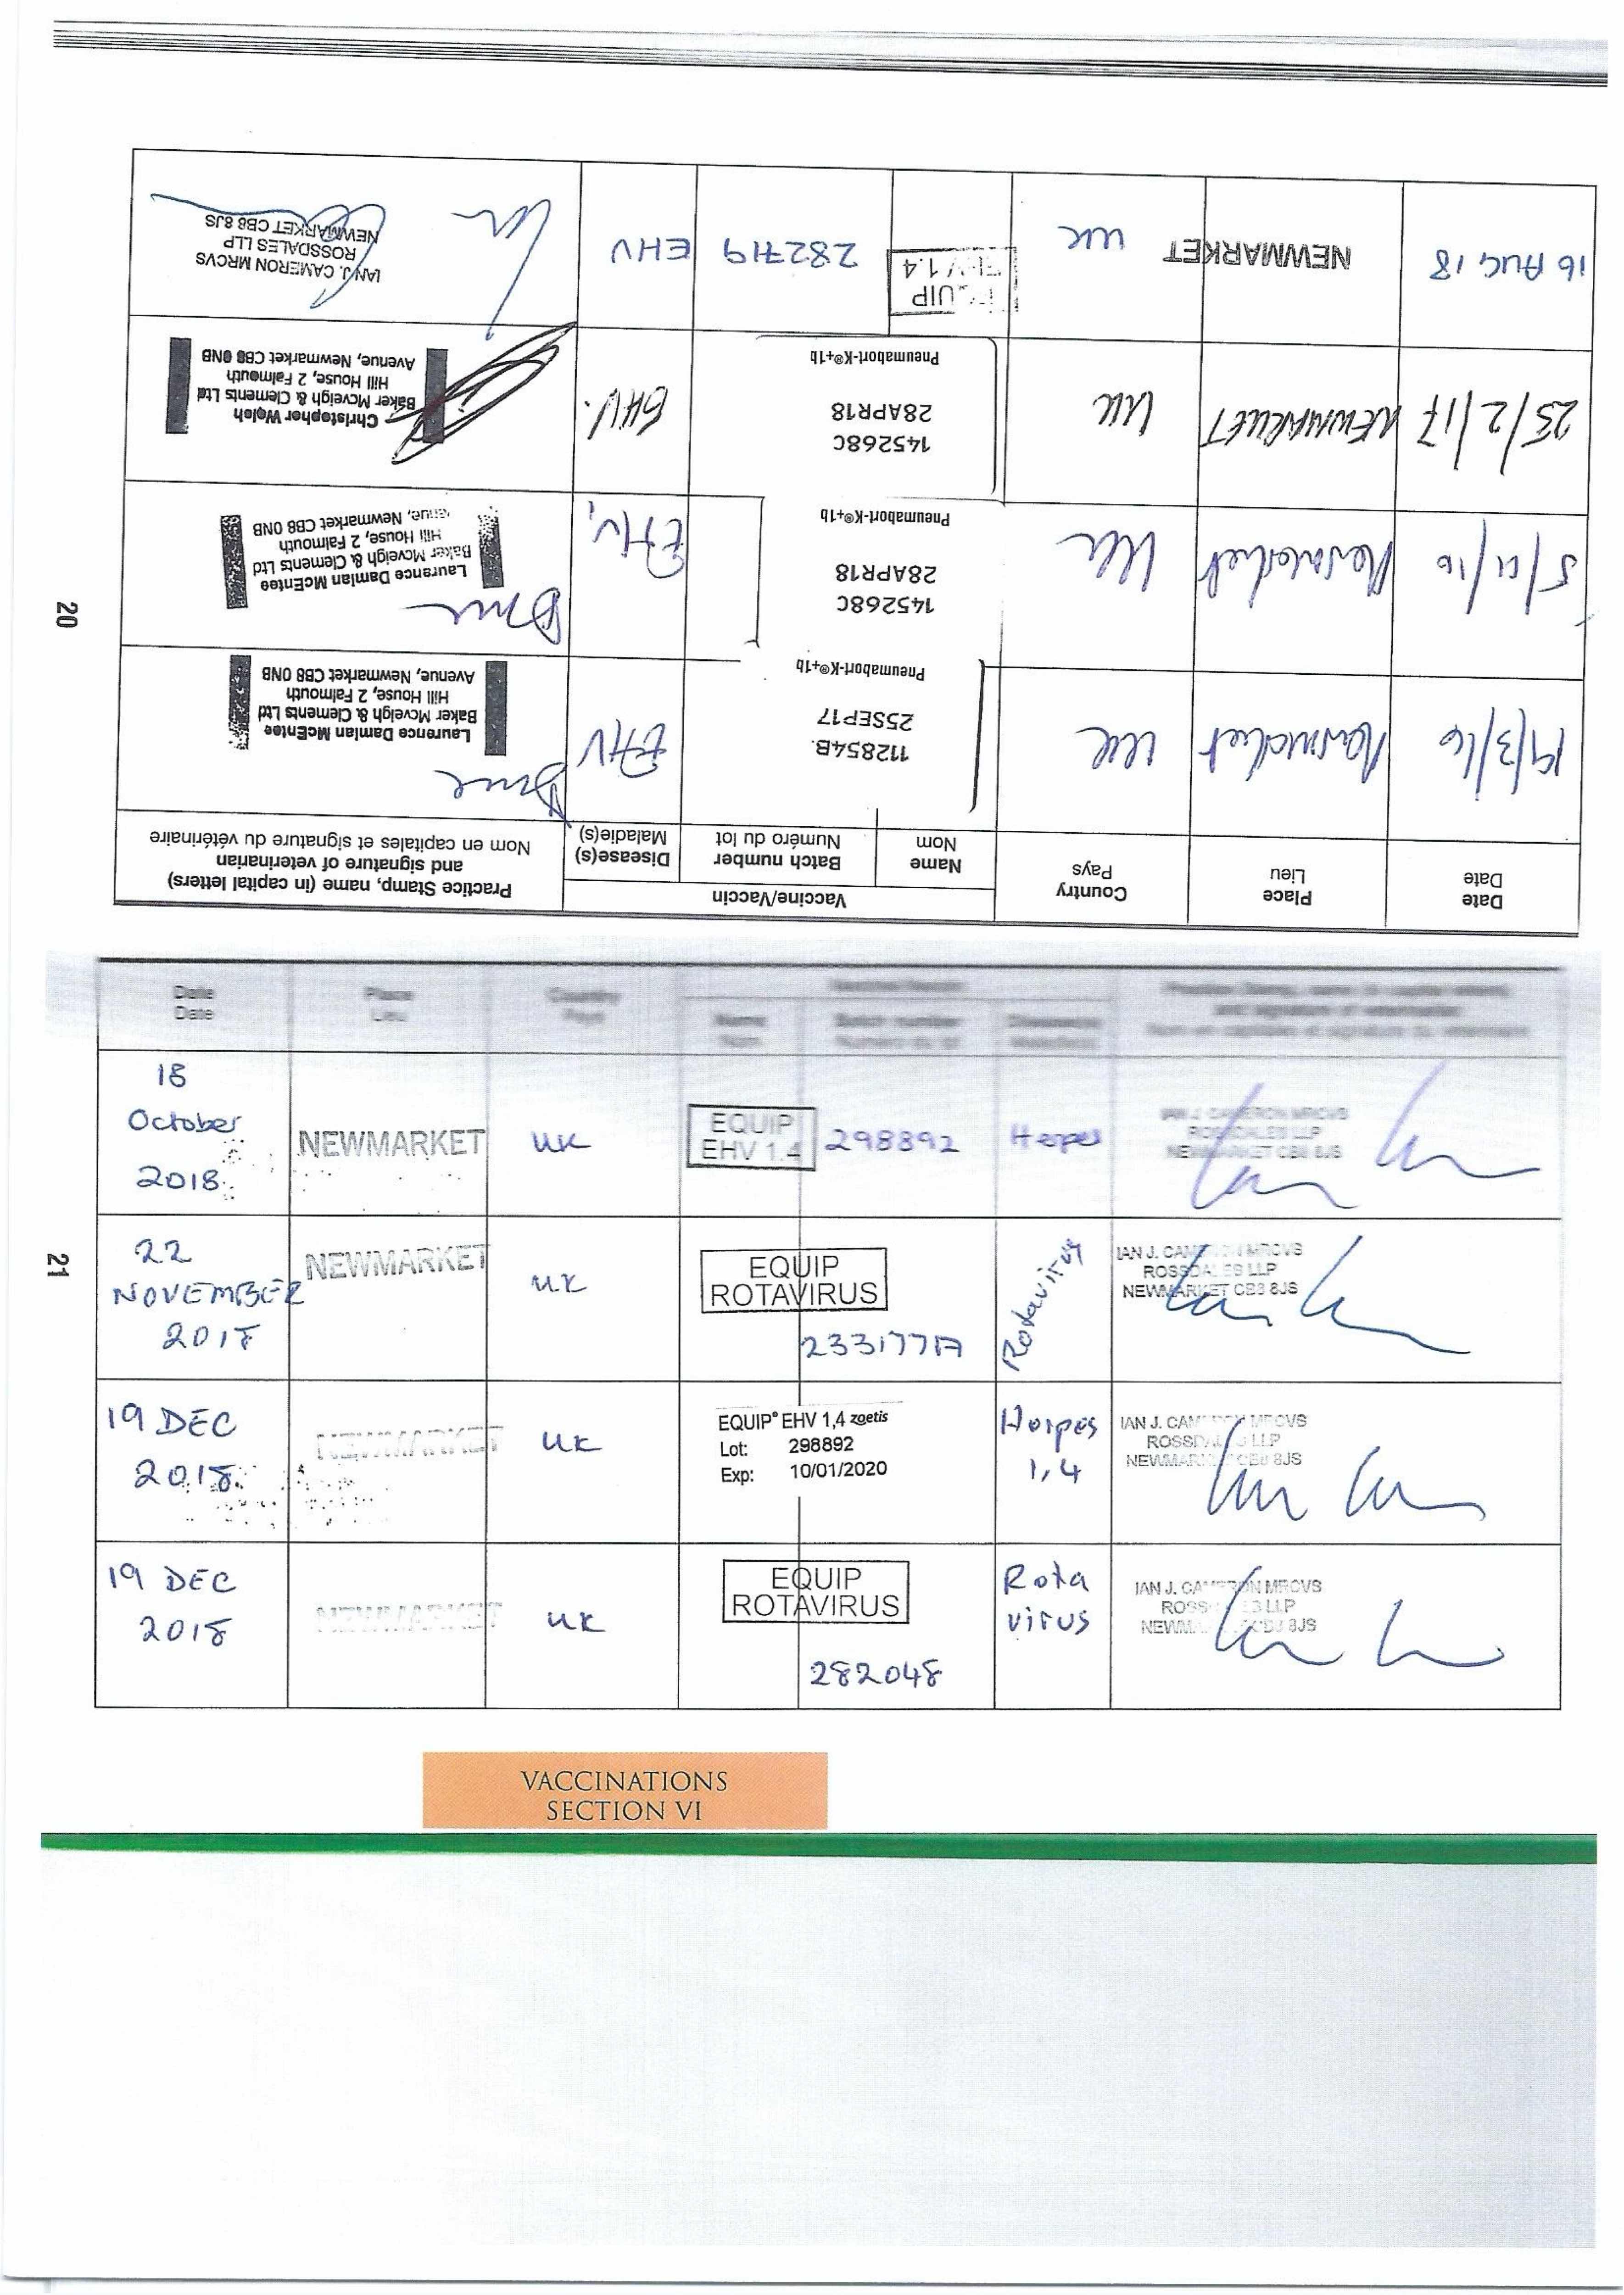 20
Date
Date
Place
Lieu
Country
Pays
Vaccine/Vaccin
Name
Nom
Batch number
Numéro du lot
Disease(s)
Maladie(s)
Practice Stamp, name (in capital letters)
and signature of veterinarian
Nom en capitales et signature du vétérinaire
19/3/16
Newmarket
UK
112854B
25SEP17
Pneumabort-K®+1b
EHV
Laurence Damian McEntee
Baker Mcveigh & Clements Ltd
Hill House, 2 Falmouth
Avenue, Newmarket CB8 0NB
Newmarket
UK
145268C
28APR18
Pneumabort-K®+1b
EHV,
Laurence Damian McEntee
Baker Mcveigh & Clements Ltd
Hill House, 2 Falmouth
Newmarket CB8 0NB
NEWMARKET
UK
145268C
28APR18
Pneumabort-K®+1b
EHV.
Christopher Welsh
Baker Mcveigh & Clements Ltd
Hill House, 2 Falmouth
Avenue, Newmarket CB8 0NB
16 AUG 18
NEWMARKET
UK
EQUIP
EHV 1.4
282719
EHV
IAN J. CAMERON MRCVS
ROSSDALES LLP
NEWMARKET CB8 8JS
21
Date
Date
Place
Lieu
Country
Pays
Name
Nom
Batch number
Numéro du lot
18
October
2018
NEWMARKET
UK
EQUIP
EHV 1.4
298892
Herpes
IAN J. CAMERON MRCVS
ROSSDALES LLP
NEWMARKET CB8 8JS
22
NOVEMBER
2018
NEWMARKET
UK
EQUIP
ROTAVIRUS
233177A
Rotavirus
IAN J. CAMERON MRCVS
ROSSDALES LLP
NEWMARKET CB8 8JS
19 DEC
2018
NEWMARKET
UK
EQUIP® EHV 1,4 zoetis
Lot: 298892
Exp: 10/01/2020
Herpes
1,4
IAN J. CAMERON MRCVS
ROSSDALES LLP
NEWMARKET CB8 8JS
19 DEC
2018
NEWMARKET
UK
EQUIP
ROTAVIRUS
282048
Rota
virus
IAN J. CAMERON MRCVS
ROSSDALES LLP
NEWMARKET CB8 8JS
VACCINATIONS
SECTION VI